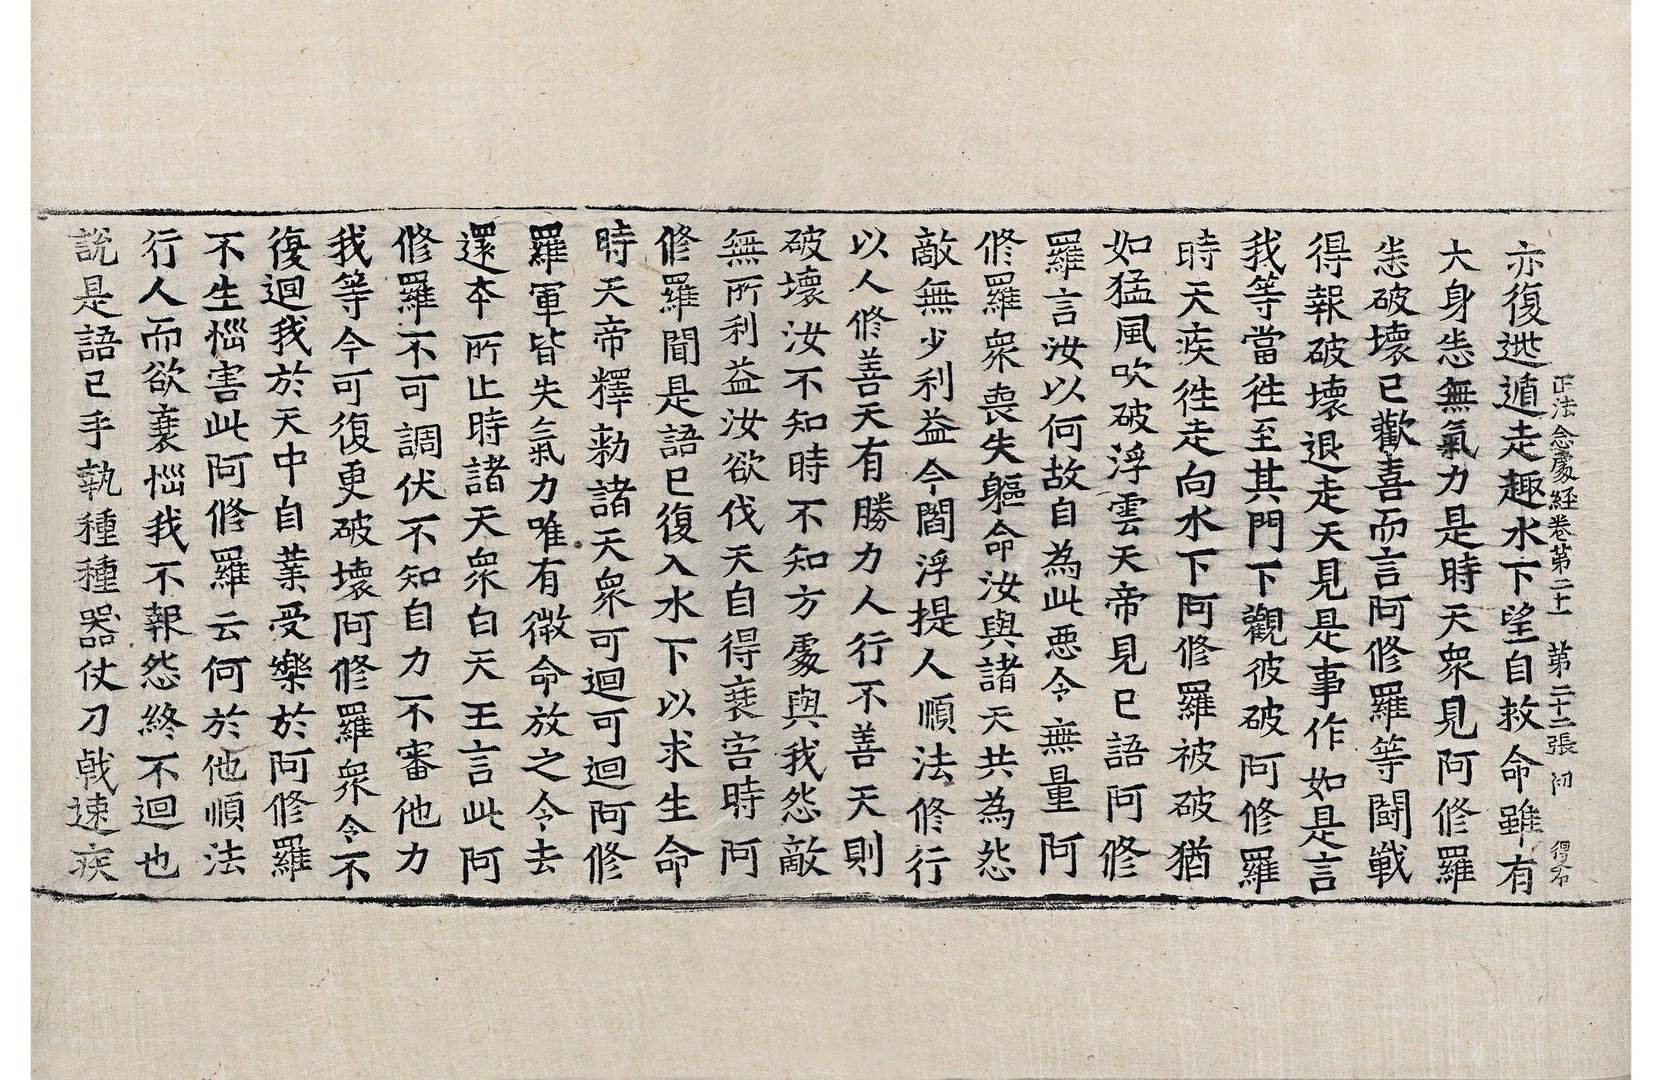 正法念處經卷第二十 第二十二張 初 得布
亦復逃遁走趣水下望自救命雖有
大身恚無氣力是時天眾見阿修羅
恚破壞已歡喜而言阿修羅等鬪戰
得報破壞退走天見是事作如是言
我等當往至其門下觀彼破阿修羅
時天疾往走向水下阿修羅被破猶
如猛風吹破浮雲天帝見已語阿修
羅言汝以何故自為此惡今無量阿
修羅眾喪失軀命汝與諸天共為怨
敵無少利益今閻浮提人順法修行
以人修善天有勝力人行不善天則
破壞汝不知時不知方處與我怨敵
無所利益汝欲伐天自得衰害時阿
修羅聞是語已復入水下以求生命
時天帝釋勑諸天眾可迴可迴阿修
羅軍皆失氣力唯有微命放之令去
還本所止時諸天眾白天王言此阿
修羅不可調伏不知自力不審他力
我等今可復更破壞阿修羅眾令不
復迴我於天中自業受樂於阿修羅
不生惱害此阿修羅云何於他順法
行人而欲衰惱我不報怨終不迴也
說是語已手執種種器仗刀戟速疾